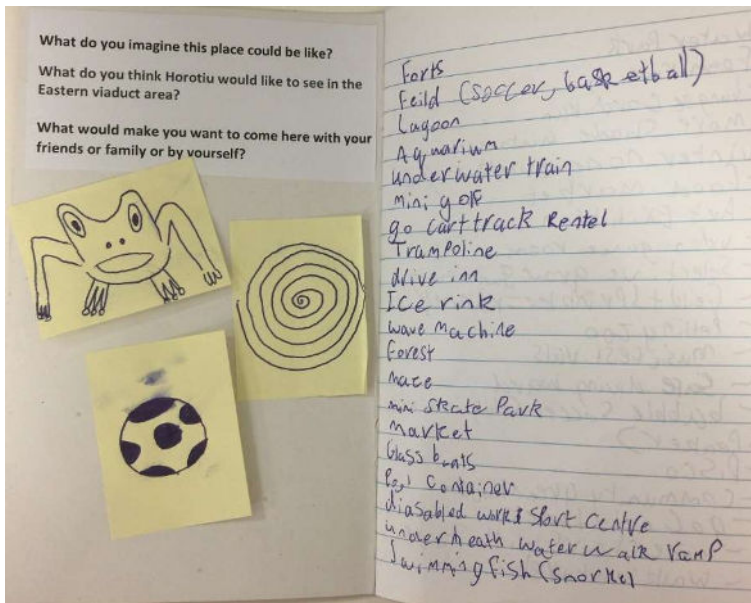 What do you imagine this place could be like?
What do you think Horotiu would like to see in the
Eastern viaduct area?
What would make you want to come here with your
friends or family or by yourself?
Forts
Feild (soccer, basketball)
Lagoon
Aquarium
underwater train
mini golf
go cart track Rentel
Trampoline
drive inn
Ice rink
wave machine
Forest
maze
mini skate Park
market
Glass boats
Pool Container
diasabled work & sport centre
underneath water walk ramp
Swimming fish (snorkel)